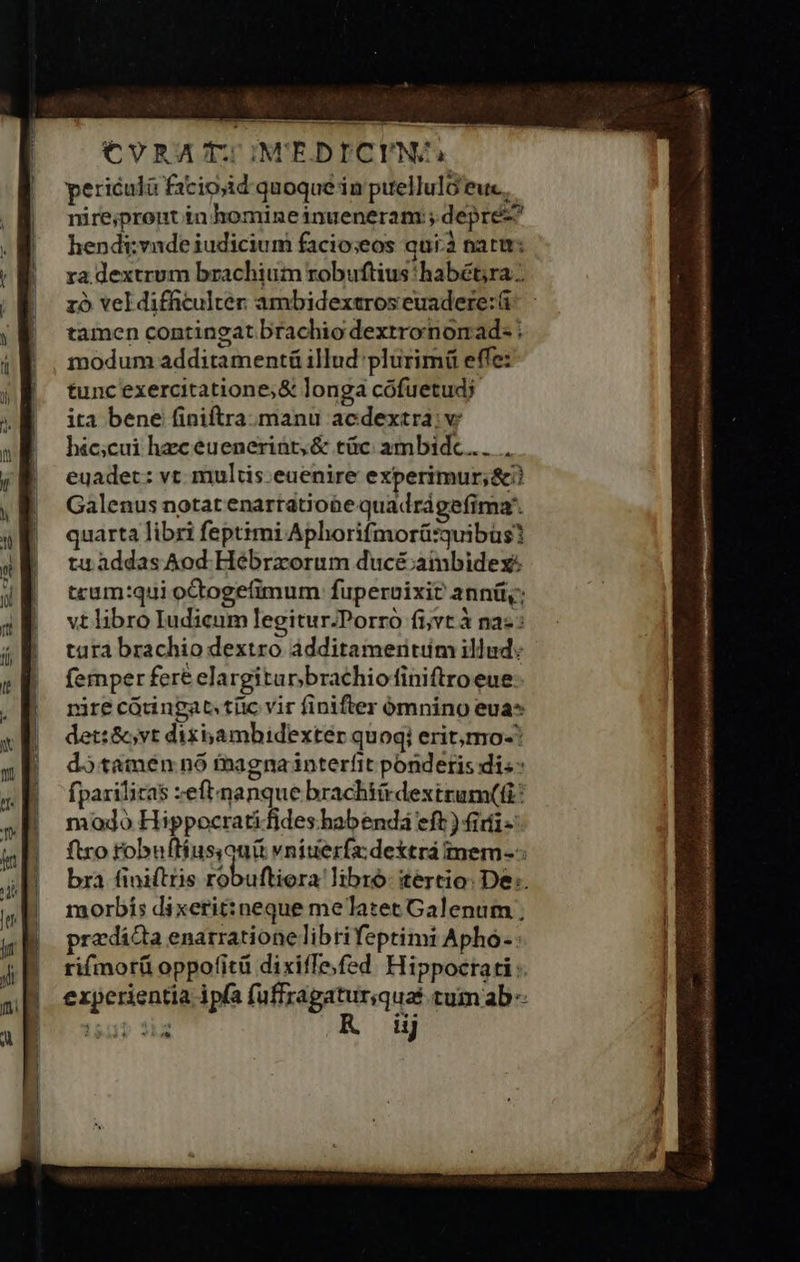 CVRAT: MEDICIN.
periculũ facio,id quoque in puellulo eue
nire,prout in homine inueneram; depre
hendi:vnde iudicium facio:eos quià natu
ra dextrum brachium robuſtius habẽt,ra
rò vel difficulter ambidextros euadere:ſi
tamen contingat brachio dextro non ad
modum additamentũ illud plurimũ eſſe:
tunc exercitatione,& longa cõſuetudi
ita bene ſiniſtra manu ac dextra v
hic,cui hæc euenerint,& tũc ambidex
euadet: vt multis euenire experimur,&
Galenus notat enarratione quadrágeſima
quarta libri ſeptimi Aphoriſmorũ:quibus
tu addas Aod Hebræorum ducẽ ambidex
trum:qui octogeſimum ſuperuixit annũ,
vt libro Iudicum legitur.Porrò ſi,vt à na
tura brachio dextro additamentum illud
ſemper ferè elargitur,brachio ſiniſtro eue
nire cõtingat, tũc vir ſiniſter omnino eua
det:&,vt dixi,ambidexter quoq; erit,mo
dò tamen nõ magna interſit ponderis diſ
ſparilitas :eſt nanque brachiũ dextrum(ſi
modò Hippocrati fides habenda eſt) ſini
ſtro robuſtius,quũ vniuerſa dextrá mem
bra ſiniſtris robuſtiora libro tertio De
morbis dixerit:neque me latet Galenum
prædicta enarratione libri ſeptimi Apho
riſmorũ oppoſitũ dixiſſe,ſed Hippocrati
experientia ipſa ſuffragatur,quæ tum ab
R iij